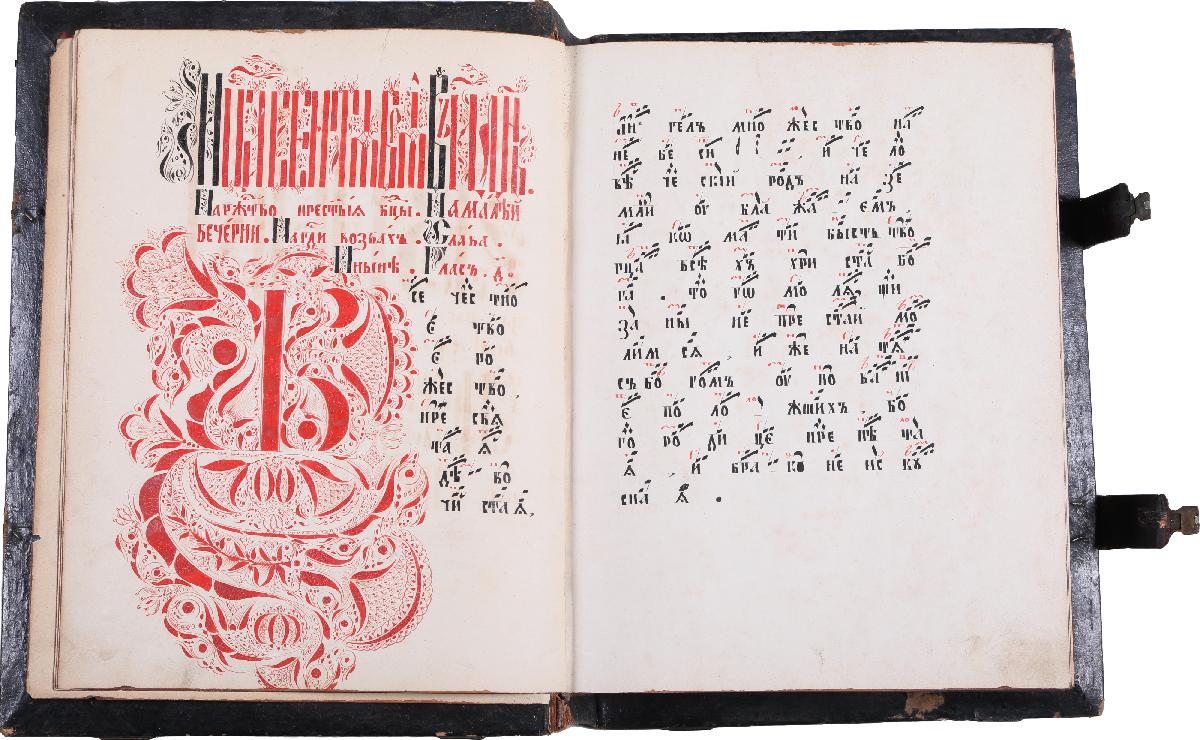 На рж҃тво прест҃ыѧ бц҃ы. На малѣй
вечерни. На гд҃и возвахъ. Слава.
Нынѣ. Гласъ. д҃.
Все чес тно
е тво
е ро
жес тво,
пре свѧ
та ѧ
дѣ во
чи стаѧ,
ан гелъ мно жес тво на
не бе си , и че ло
вѣ че скїй родъ на зе
мли оу бла жа емъ
ꙗ кѡ ма ти бысть тво
рца всѣ хъ хри ста бо
га . то гѡ мо лѧ щи
за ны не пре стай мо
лим сѧ , и же на тѧ
съ бо гомъ оу по ва нї
е по ло жшихъ , бо
го ро ди це пре пѣ та
ѧ , и бра ко не ис кꙋ
сна ѧ .